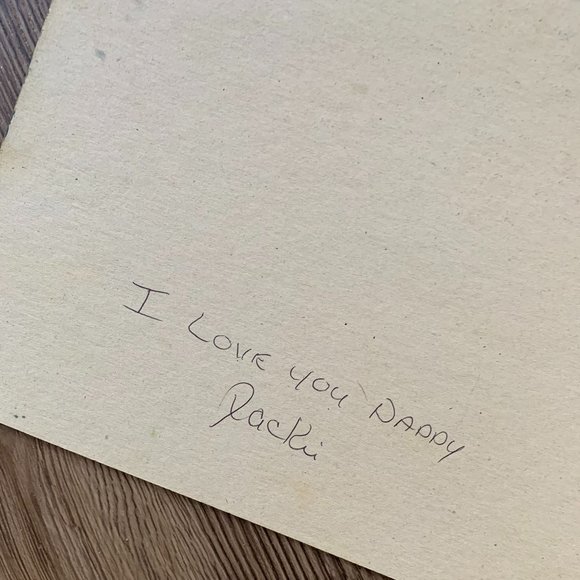 I LOVE YOU DADDY
Jacki